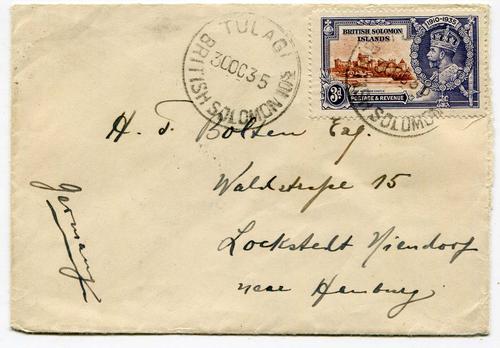 TULAGI
30 OC 35
BRITISH SOLOMON IS
BRITISH SOLOMON
ISLANDS
1910-1935
3d
POSTAGE & REVENUE
SOLOMON
H. T. Bolten Esq.
Waldstraße 15
Lockstedt Niendorf
near Hamburg.
Germany